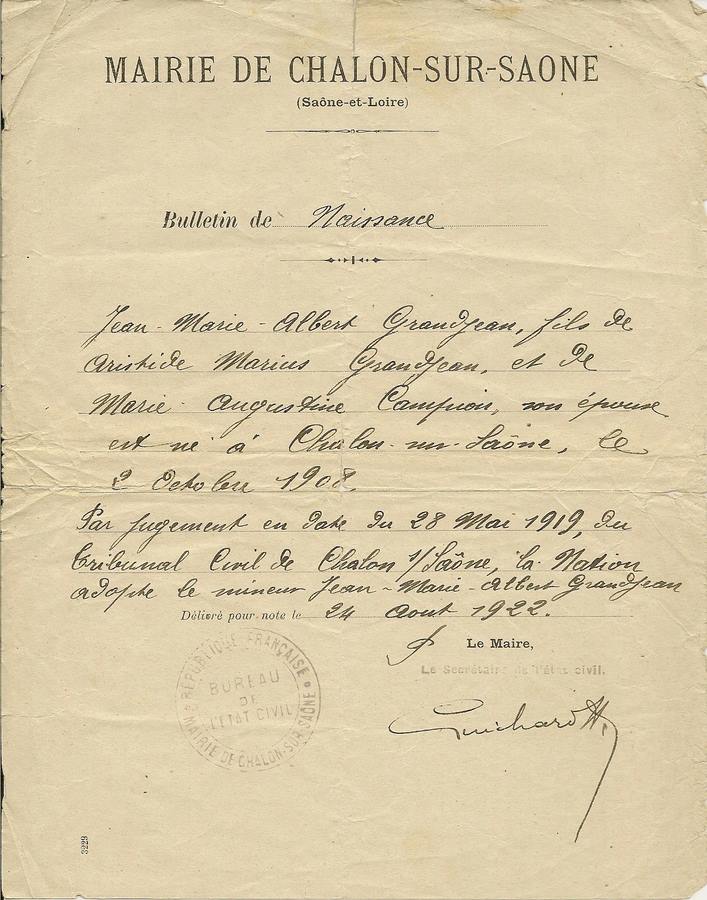 MAIRIE DE CHALON-SUR-SAONE
(Saône-et-Loire)
Bulletin de Naissance
Jean-Marie-Albert Grandjean, fils de
Aristide Marius Grandjean, et de
Marie Augustine Campion, son épouse
est né à Chalon-sur-Saône, le
2 Octobre 1908.
Par jugement en date du 28 Mai 1919, du
Tribunal Civil de Chalon s/Saône, la Nation
adopte le mineur Jean-Marie-Albert Grandjean
Délivré pour note le 24 Aout 1922.
Le Maire,
Le Secrétaire de l'état civil.
RÉPUBLIQUE FRANÇAISE
BUREAU
DE
L'ÉTAT CIVIL
MAIRIE DE CHALON-SUR-SAÔNE
Guichard
3229